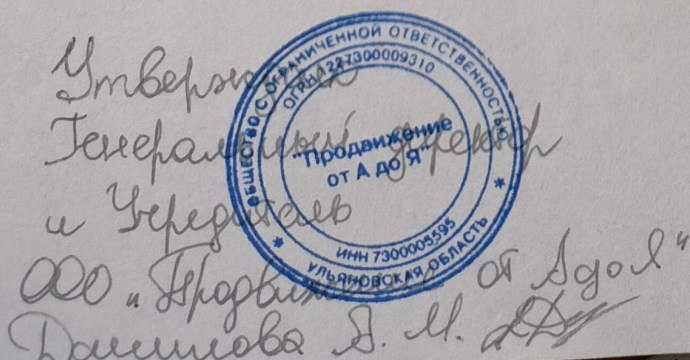 Утверждаю
Генеральный директор
и Учредитель
ООО „Продвижение от А до Я"
Данилова А. М.
ОБЩЕСТВО С ОГРАНИЧЕННОЙ ОТВЕТСТВЕННОСТЬЮ
ОГРН 1227300009310
"Продвижение
от А до Я"
ИНН 7300005595
* УЛЬЯНОВСКАЯ ОБЛАСТЬ *